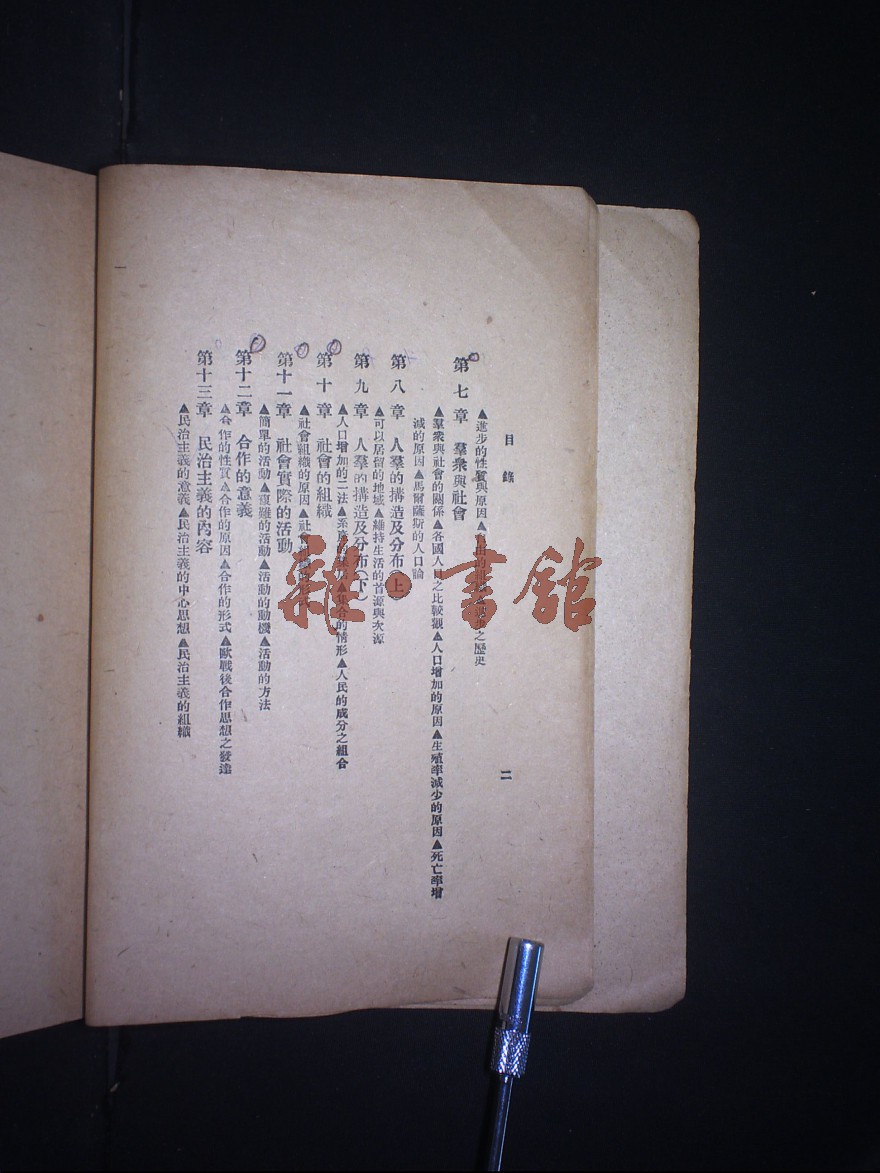 目錄
二
▲進步的性質與原因▲自由的 之歷史
第七章 羣衆與社會
▲羣衆與社會的關係▲各國人口之比較觀▲人口增加的原因▲生殖率減少的原因▲死亡率增
減的原因▲馬爾薩斯的人口論
第八章 人羣的構造及分布(上)
▲可以居留的地域▲維持生活的首源與次源
第九章 人羣的構造及分布(下)
▲人口增加的二法▲ ▲集合的情形▲人民的成分之組合
第十章 社會的組織
▲社會組織的原因▲社會 形式
第十一章 社會實際的活動
▲簡單的活動▲複雜的活動▲活動的動機▲活動的方法
第十二章 合作的意義
▲合作的性質▲合作的原因▲合作的形式▲歐戰後合作思想之發達
第十三章 民治主義的內容
▲民治主義的意義▲民治主義的中心思想▲民治主義的組織
雜·書館